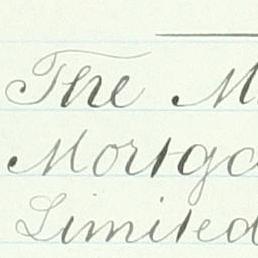 The M
Mortga
Limited